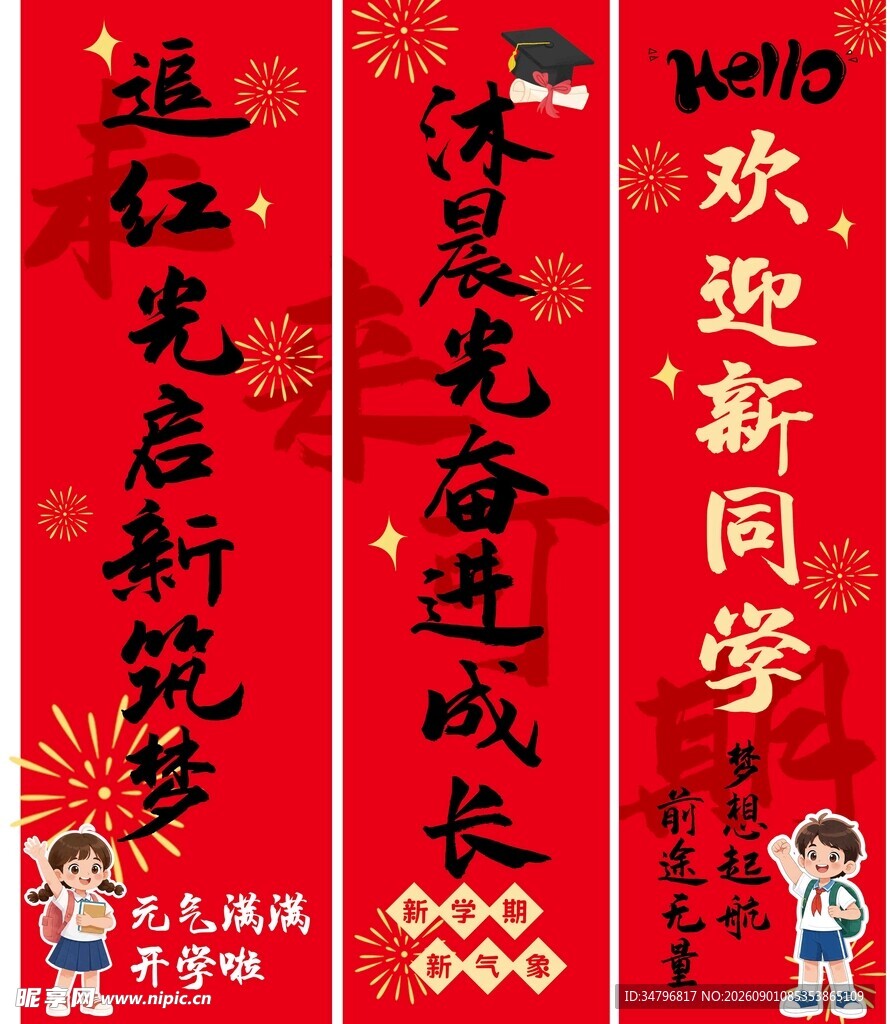 追红光启新筑梦
元气满满
开学啦
沐晨光奋进成长
新学期
新气象
Hello
欢迎新同学
梦想起航
前途无量
未来可期
昵享网 www.nipic.cn
ID:34796817 NO:20260901085353865109